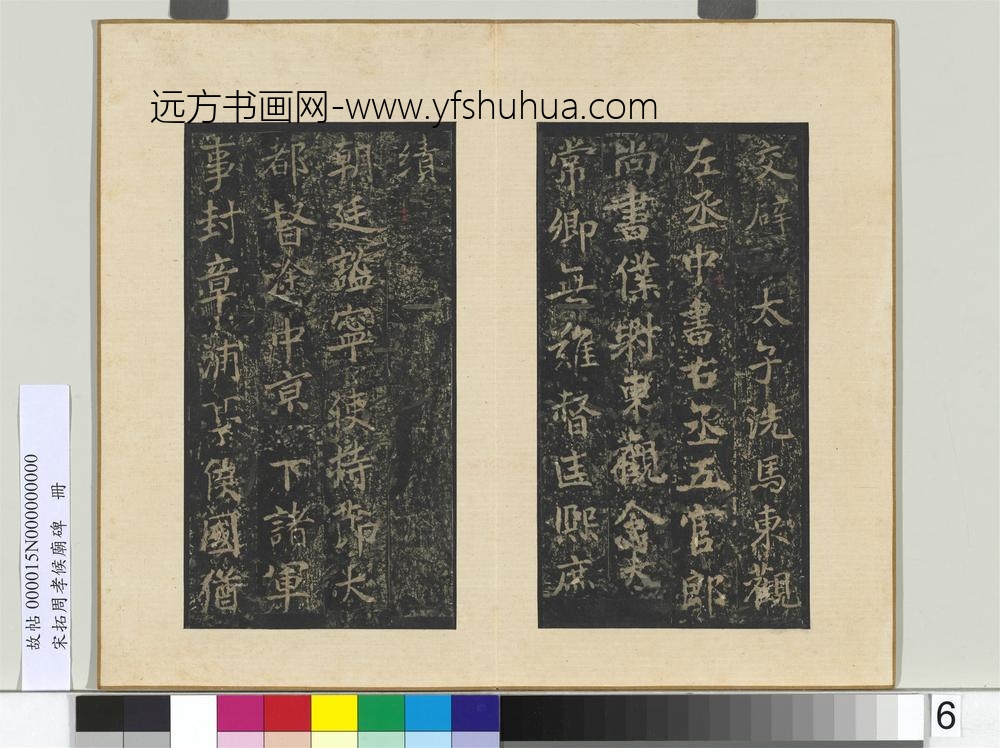 远方书画网-www.yfshuhua.com
交辟太子洗馬東觀
左丞中書右丞五官郎
尚書僕射東觀令太
常卿無難督匡熙庶
績
朝廷謐寧使持節大
都督塗中京下諸軍
事封章浦亭侯國猶
故帖 000015N000000000
宋拓周孝候廟碑 冊
6